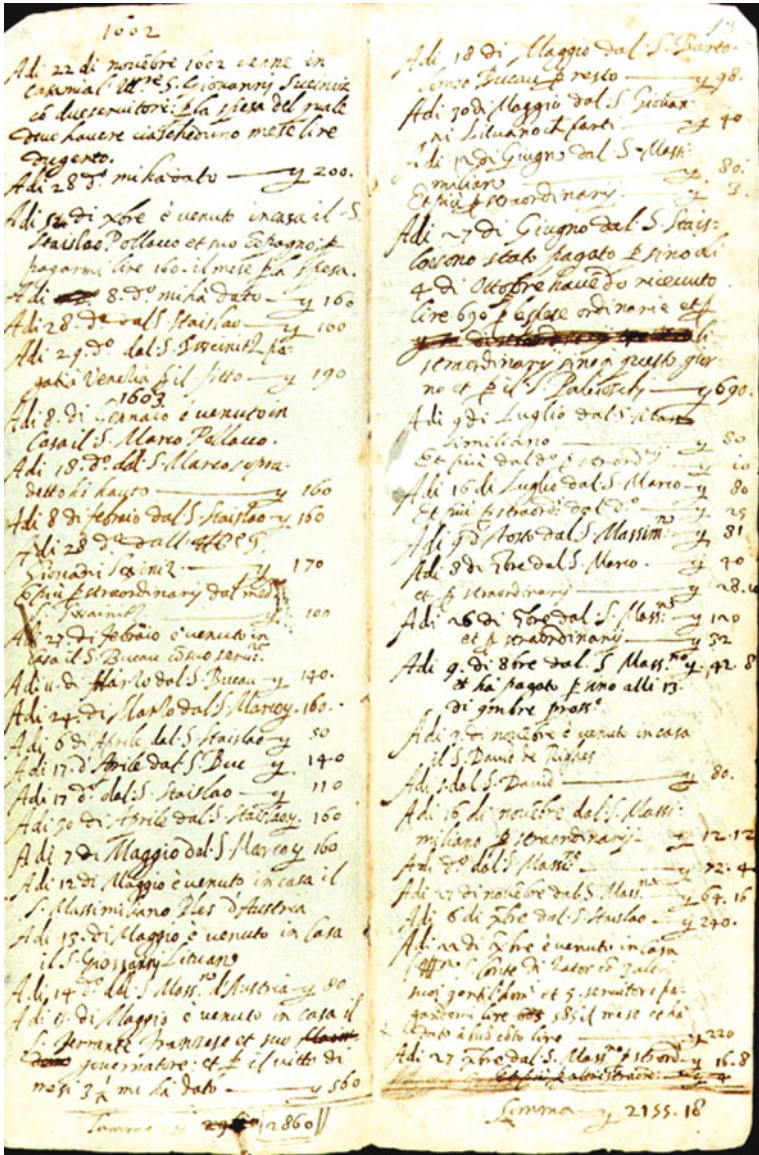 1602
Adi 22 di novẽbre 1602 venne in
casa mia l'Ill.re S. Giovanni Sveiniz
cõ due servitori: p la spesa del quale
deve havere ciascheduno mese lire
dugento.
Adi 28 d.º mi ha dato — y 200.
Adi di xbre è venuto in casa il S.
Staislao Pollacco et suo cõpagno; p
pagarmi lire 160. il mese p la spesa.
Adi 8. d.º mi ha dato — y 160
Adi 28. d.º dal S. Staislao — y 100
Adi 29. d.º dal S. Sveinitz pa-
gati a Venetia p il — y 190
1603.
Adi 8. di Gennaio è venuto in
Casa il S. Marco Pollacco.
Adi 18. d.º dal S. Marco sopra-
detto hi hauto — y 160
Adi 8 di febraio dal S. Staislao y 160
Adi 28 d.º dall
Giovãni Sveiniz — y 170
Et più p straordinary dal med.
S. Svainitz — 100
Adi 27. di febraio è venuto in
casa il S. Bucau cõ suo serv.re
Adi 11. di Marzo dal S. Bucau y 140.
Adi 24. di Marzo dal S. Marco y. 160.
Adi 6 di Aprile dal S. Staislao y 50
Adi 17. d'Aprile dal S. Buc y. 140
Adi 17 d.º dal S. Staislao — y 110
Adi 30 di Aprile dal S. Staislao y. 160
Adi 7 di Maggio dal S. Marco y 160
Adi 12 di Maggio è venuto in casa il
S. Massimiliano d'Austria
Adi 15. di Maggio è venuto in Casa
il S. Giovanni Lituano
Adi, 14 d.º dal S. Mass.no d'Austria y 80
Adi di Maggio è venuto in casa il
S. Ferrante Franzese et suo
governatore: et p il vitto di
mesi 3 mi ha dato — y 560
Summa y 2860
13
Adi 18 di Maggio dal S. Barto-
lomeo Bucau p resto — y 98.
Adi 30 di Maggio dal S. Giovan-
ni Lituano ch partì — y 40
Adi 12 di Giugno dal S. Massi-
miliano — y 80.
Et più p straordinary — y 3.
Adi 27 di Giugno dal S. Stais-
lao sono stato pagato p sino di
4 di Ottobre havẽdo ricevuto
lire 690 p le spese ordinarie et p
li
straordinary sino a questo gior-
no et p il S. — y 690.
Adi 9 di Luglio dal S.
similiano — y 80
Et più dal d.º p straord.ry — y 10
Adi 16 di Luglio dal S. Marco y 80
Et più p straord. dal d.º — y 25
Adi 9 d'Aosto dal S. Massim.no y 81
Adi 8 di 7bre dal S. Marco. y 40
et p straordinary — y 28.
Adi 26 di 7bre dal S. Mass.no y 120
et p straordinary — y 32
Adi 9. di 8bre dal S. Mass.no y. 42. 8
et ha pagato p sino alli 13.
di 9mbre pross.º
Adi 2 di novẽbre è venuto in casa
il S. David de
Adi dal S. David — y 80.
Adi 16 di novẽbre dal S. Massi-
miliano p straordinary — y 12.12
Adi d.º dal S. Massi.no — y 72. 4
Adi 27 di novẽbre dal S. Mass.no y 64. 16
Adi 6 di xbre dal S. Staislao — y 240.
Adi 22 di xbre è venuto in Casa
S. Conte di Zator cõ 3 altri
suoi gentilhomi et 5. servitori pa-
gandomi lire 585 il mese et ha
lire — y 220
Adi 27 xbre dal S. Mass.no p straord. y 16.8
et più p altri straord: — y 4
Summa — y 2155. 18